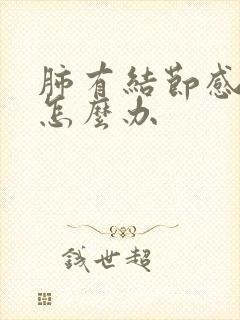 肺有結節感
怎麼办
錢世超